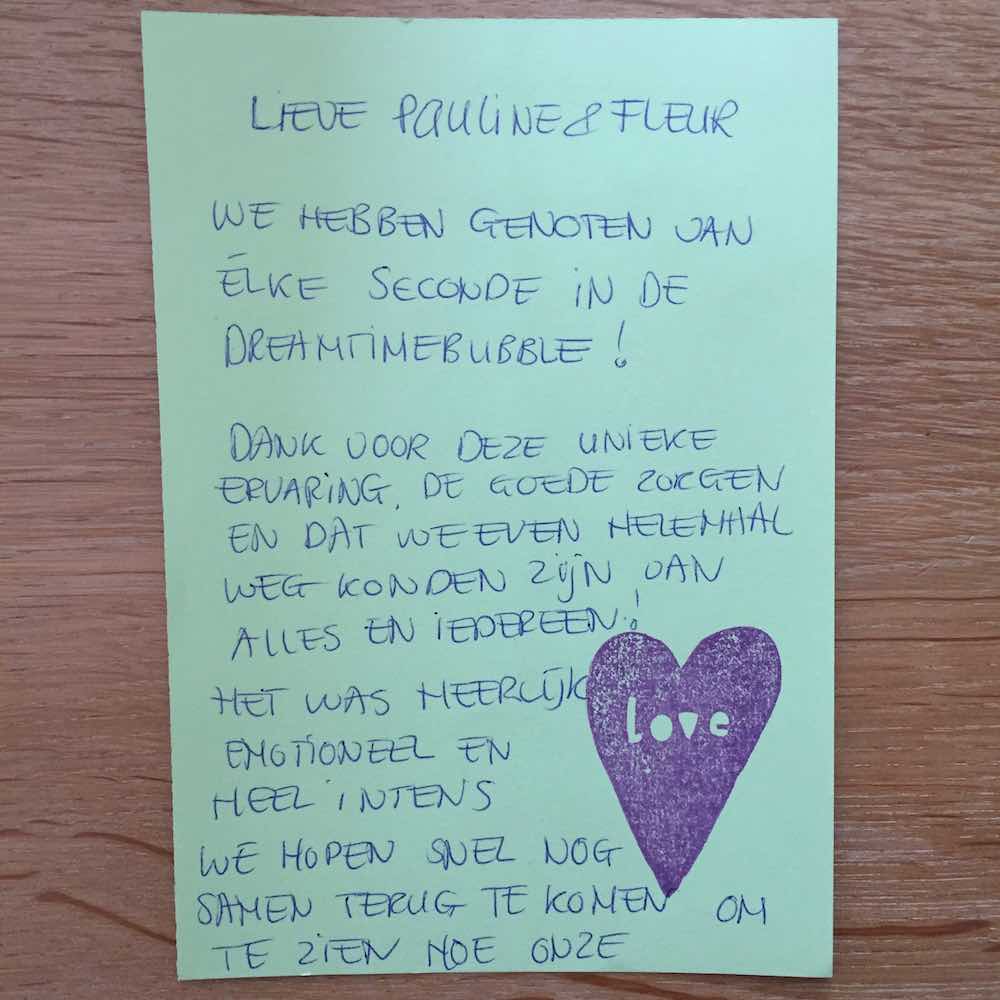 LIEVE PAULINE & FLEUR
WE HEBBEN GENOTEN VAN
ÉLKE SECONDE IN DE
DREAMTIMEBUBBLE !
DANK VOOR DEZE UNIEKE
ERVARING, DE GOEDE ZORGEN
EN DAT WE EVEN HELEMAAL
WEG KONDEN ZIJN VAN
ALLES EN IEDEREEN!
HET WAS HEERLIJK
love
EMOTIONEEL EN
HEEL INTENS
WE HOPEN SNEL NOG
SAMEN TERUG TE KOMEN OM
TE ZIEN HOE ONZE